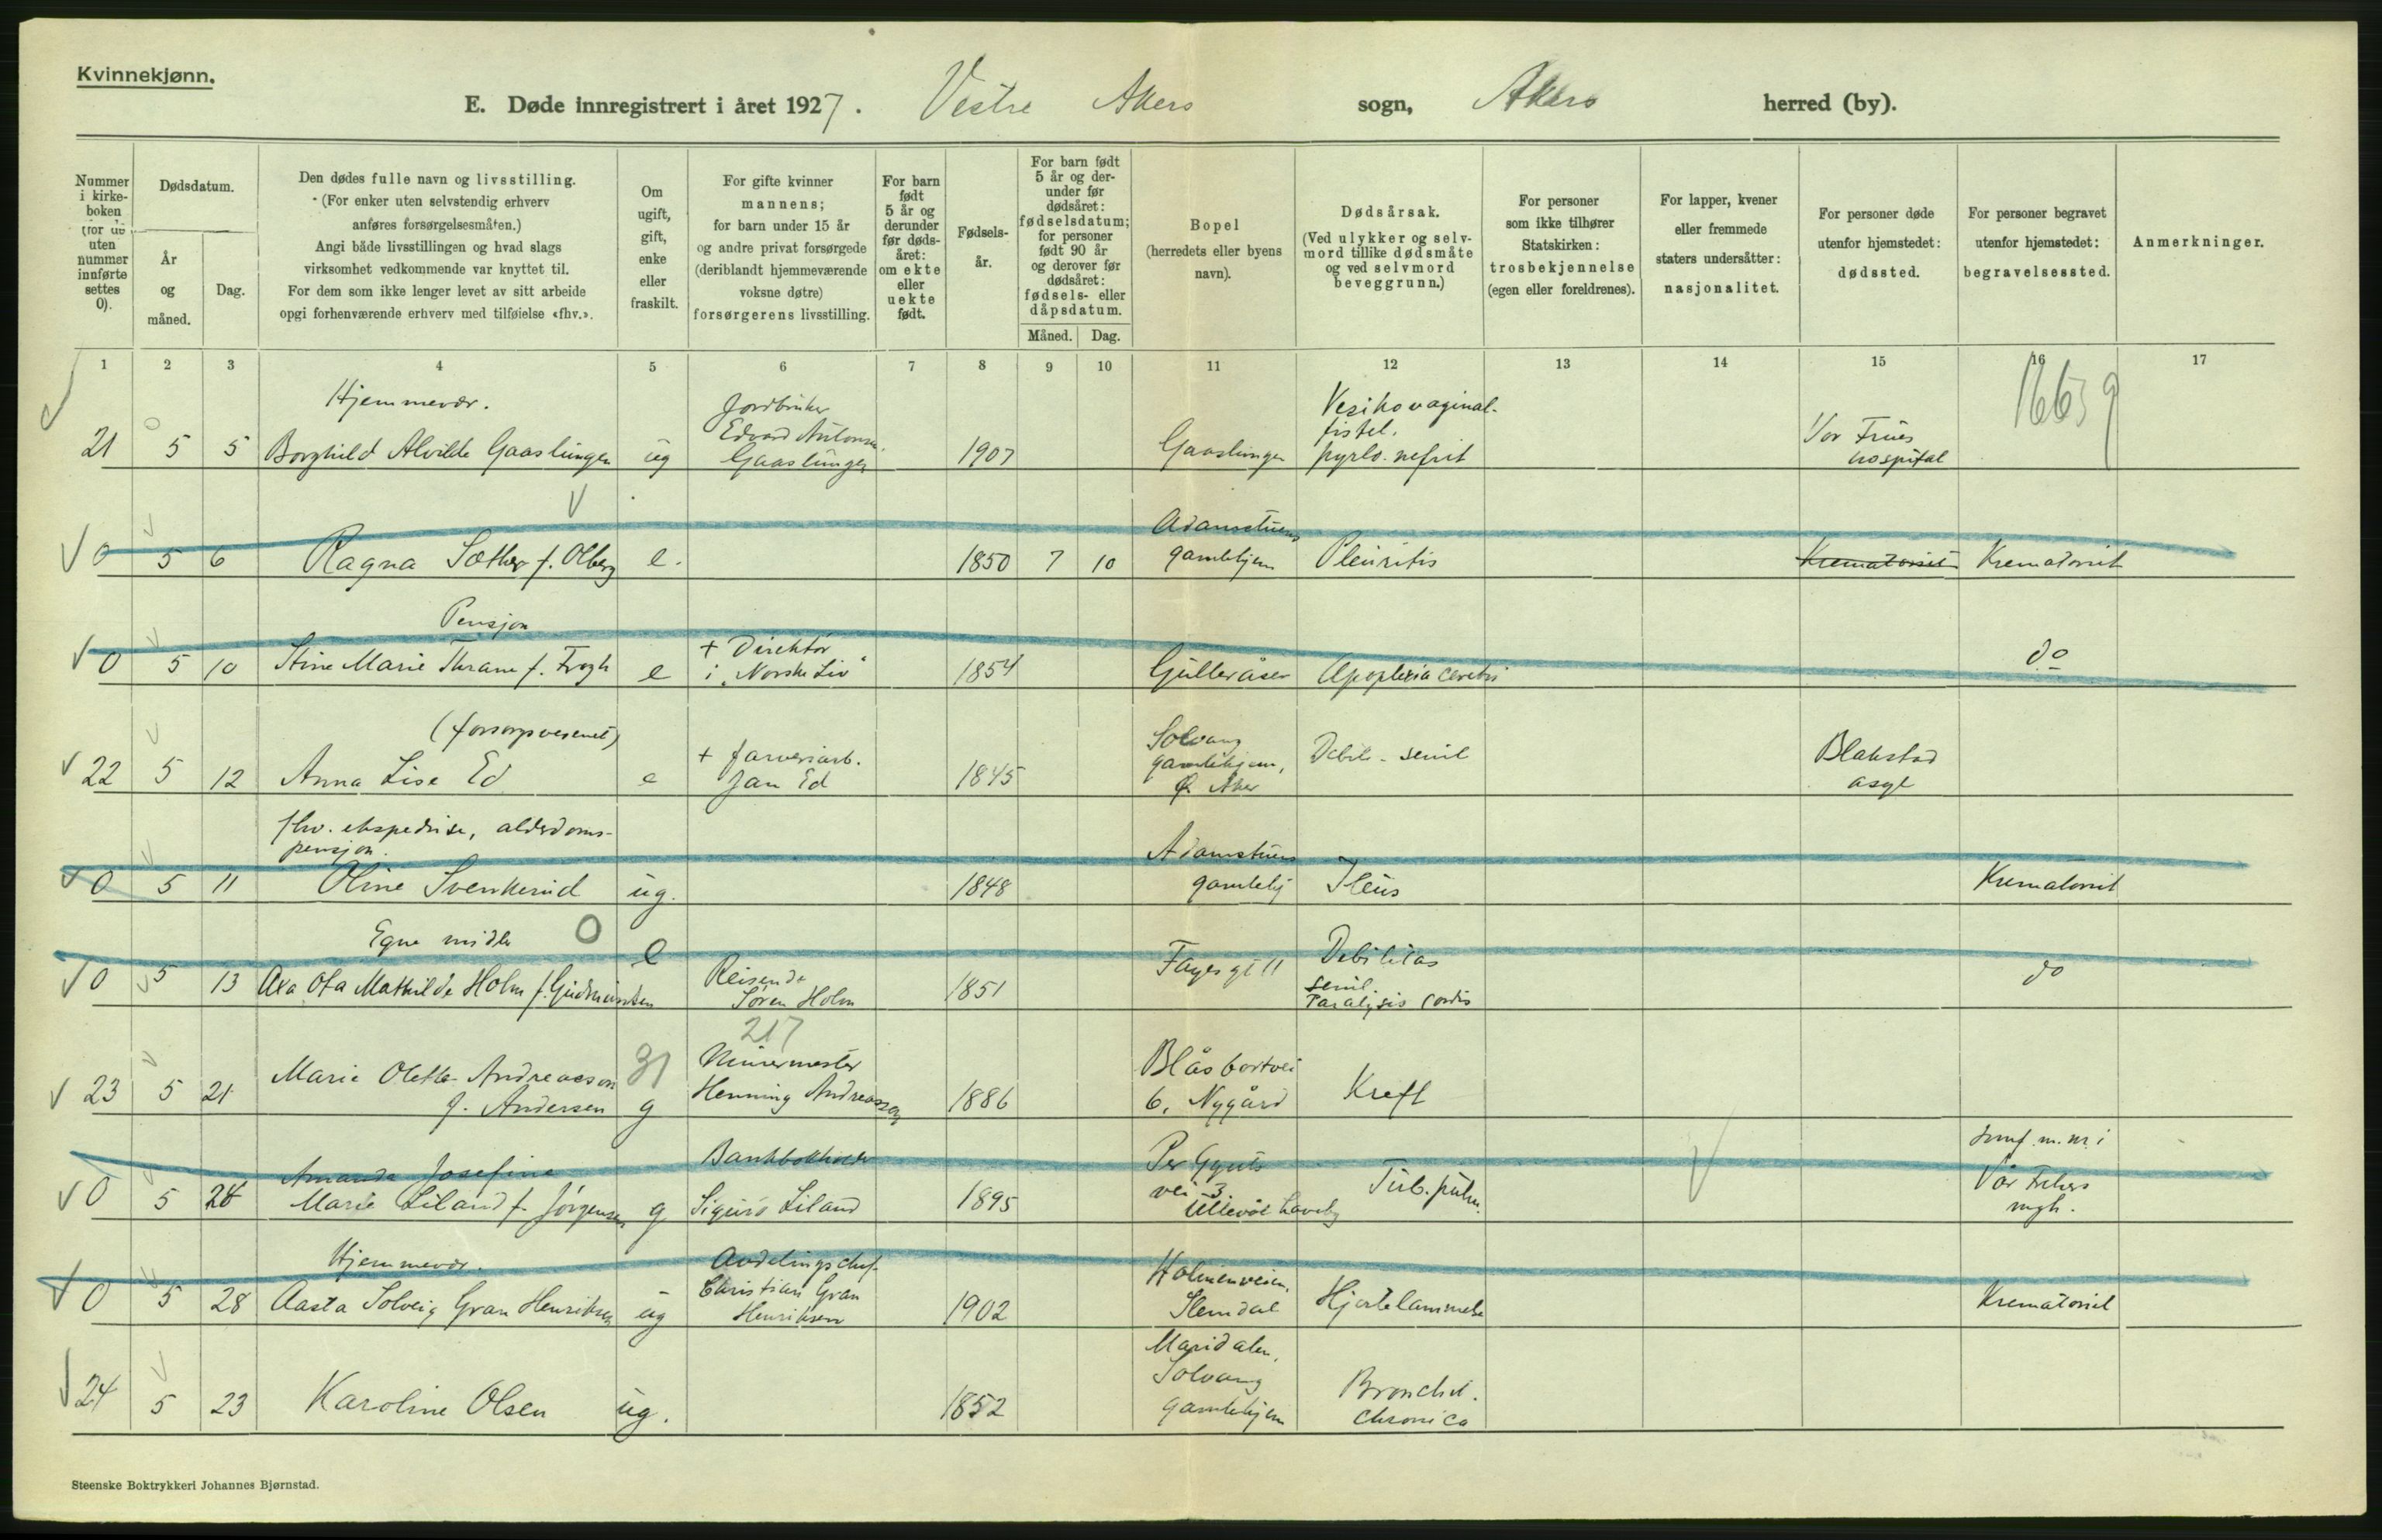 Kvinnekjønn.
E. Døde innregistrert i året 1927. Vestre Akers sogn, Akers herred (by).
Nummer i kirke-boken (for de uten nummer innførte settes 0).
Dødsdatum.
År og måned.
Dag.
Den dødes fulle navn og livsstilling.
(For enker uten selvstendig erhverv
anføres forsørgelsesmåten.)
Angi både livsstillingen og hvad slags
virksomhet vedkommende var knyttet til.
For dem som ikke lenger levet av sitt arbeide
opgi forhenværende erhverv med tilføielse «fhv.».
Om ugift, gift, enke eller fraskilt.
For gifte kvinner
mannens;
for barn under 15 år
og andre privat forsørgede
(deriblandt hjemmeværende
voksne døtre)
forsørgerens livsstilling.
For barn født 5 år og derunder før døds-året: om ekte eller uekte født.
Fødsels-år.
For barn født
5 år og der-
under før
dødsåret:
fødselsdatum;
for personer
født 90 år
og derover før
dødsåret:
fødsels- eller
dåpsdatum.
Måned. Dag.
Bopel
(herredets eller byens
navn).
Dødsårsak.
(Ved ulykker og selv-
mord tillike dødsmåte
og ved selvmord
beveggrunn.)
For personer
som ikke tilhører
Statskirken:
trosbekjennelse
(egen eller foreldrenes).
For lapper, kvener
eller fremmede
staters undersåtter:
nasjonalitet.
For personer døde
utenfor hjemstedet:
dødssted.
For personer begravet
utenfor hjemstedet:
begravelsessted.
Anmerkninger.
1 2 3 4 5 6 7 8 9 10 11 12 13 14 15 16 17
Hjemmevær. Jordbruker Vesikovaginal-
Edvard Antonsen fistel. Vor Frues
21 5 5 Borghild Alvilde Gaaslungen ug Gaaslungen 1907 Gaaslungen pyelo-nefrit hospital
Adamstuens
0 5 6 Ragna Sæther f. Olberg e. 1850 7 10 gamlehjem Pleuritis Krematoriet Krematoriet
Pensjon + Direktør
0 5 10 Stine Marie Thrane f. Frogh e i "Norske Liv" 1854 Gulleråsen Apoplexia cerebri do
(forsorgsvesenet) Solvang
+ farveriarb. gamlehjem, Debil. senil Blakstad
22 5 12 Anna Lise Ed e Jan Ed 1845 Ø. Aker asyl
fhv. ekspedrise, alderdoms-
pensjon. Adamstuens
0 5 11 Oline Svenkerud ug. 1848 gamlehj Ileus Krematoriet
Egne midler O e Debilitas
Reisende Fagergill senil.
0 5 13 Axa Ota Mathilde Holm f. Gudmundsen Søren Holm 1851 Paralysis cordis do
217
Marie Olette Andreasson 31 Murermester Blåsbortvei
23 5 21 f. Andersen g Henning Andreasson 1886 6, Nygård Kreft
Amanda Josefine Bankbokholder Per Gynts
vei 3 Vår Frelsers
0 5 28 Marie Liland f. Jørgensen g Sigurd Liland 1895 Ullevål haveby Tub. pulm.
Hjemmevær. Avdelingschef Holmenveien,
Christian Gran
0 5 28 Aasta Solveig Gran Henriksen ug Henriksen 1902 Slemdal Hjertelammelse Krematoriet
Maridalen,
Solvang Bronchit.
24 5 23 Karoline Olsen ug. 1852 gamlehjem chronica
Steenske Boktrykkeri Johannes Bjørnstad.